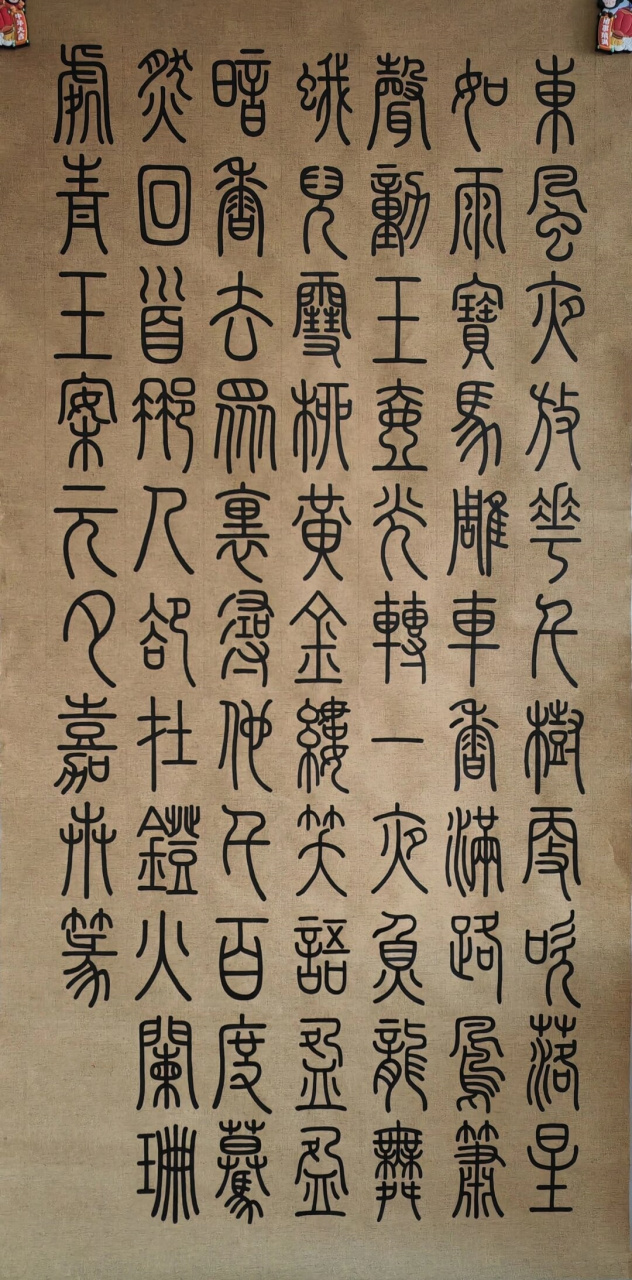 東風夜放華千樹更吹落星
如雨寶馬雕車香滿路鳳簫
聲動玉壺光轉一夜魚龍舞
蛾兒雪柳黃金縷笑語盈盈
暗香去眾裏尋他千百度驀
然回首那人卻在鐙火闌珊
處青玉案元夕嘉篆